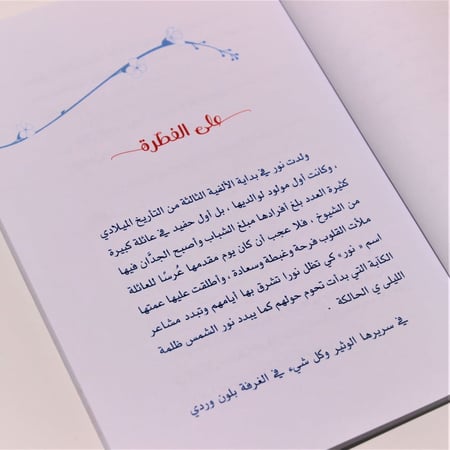 على الفطرة
ولدت نور في بداية الألفية الثالثة من التأريخ الميلادي
، وكانت أول مولود لوالديها ، بل أول حفيد في عائلة كبيرة
كثيرة العدد بلغ أفرادها مبلغ الشباب وأصبح الجدَّان فيها
من الشيوخ . فلا عجب أن كان يوم مقدمها عُرسًا للعائلة
ملأت القلوب فرحة وغبطة وسعادة ، وأطلقت عليها عمتها
اسم « نور» كي تظل نوراً تشرق بها أيامهم وتبدد مشاعر
الكآبة التي بدأت تحوم حولهم كما يبدد نور الشمس ظلمة
الليلي ي الحالكة .
في سريرها الوثير وكل شيء في الغرفة بلون وردي